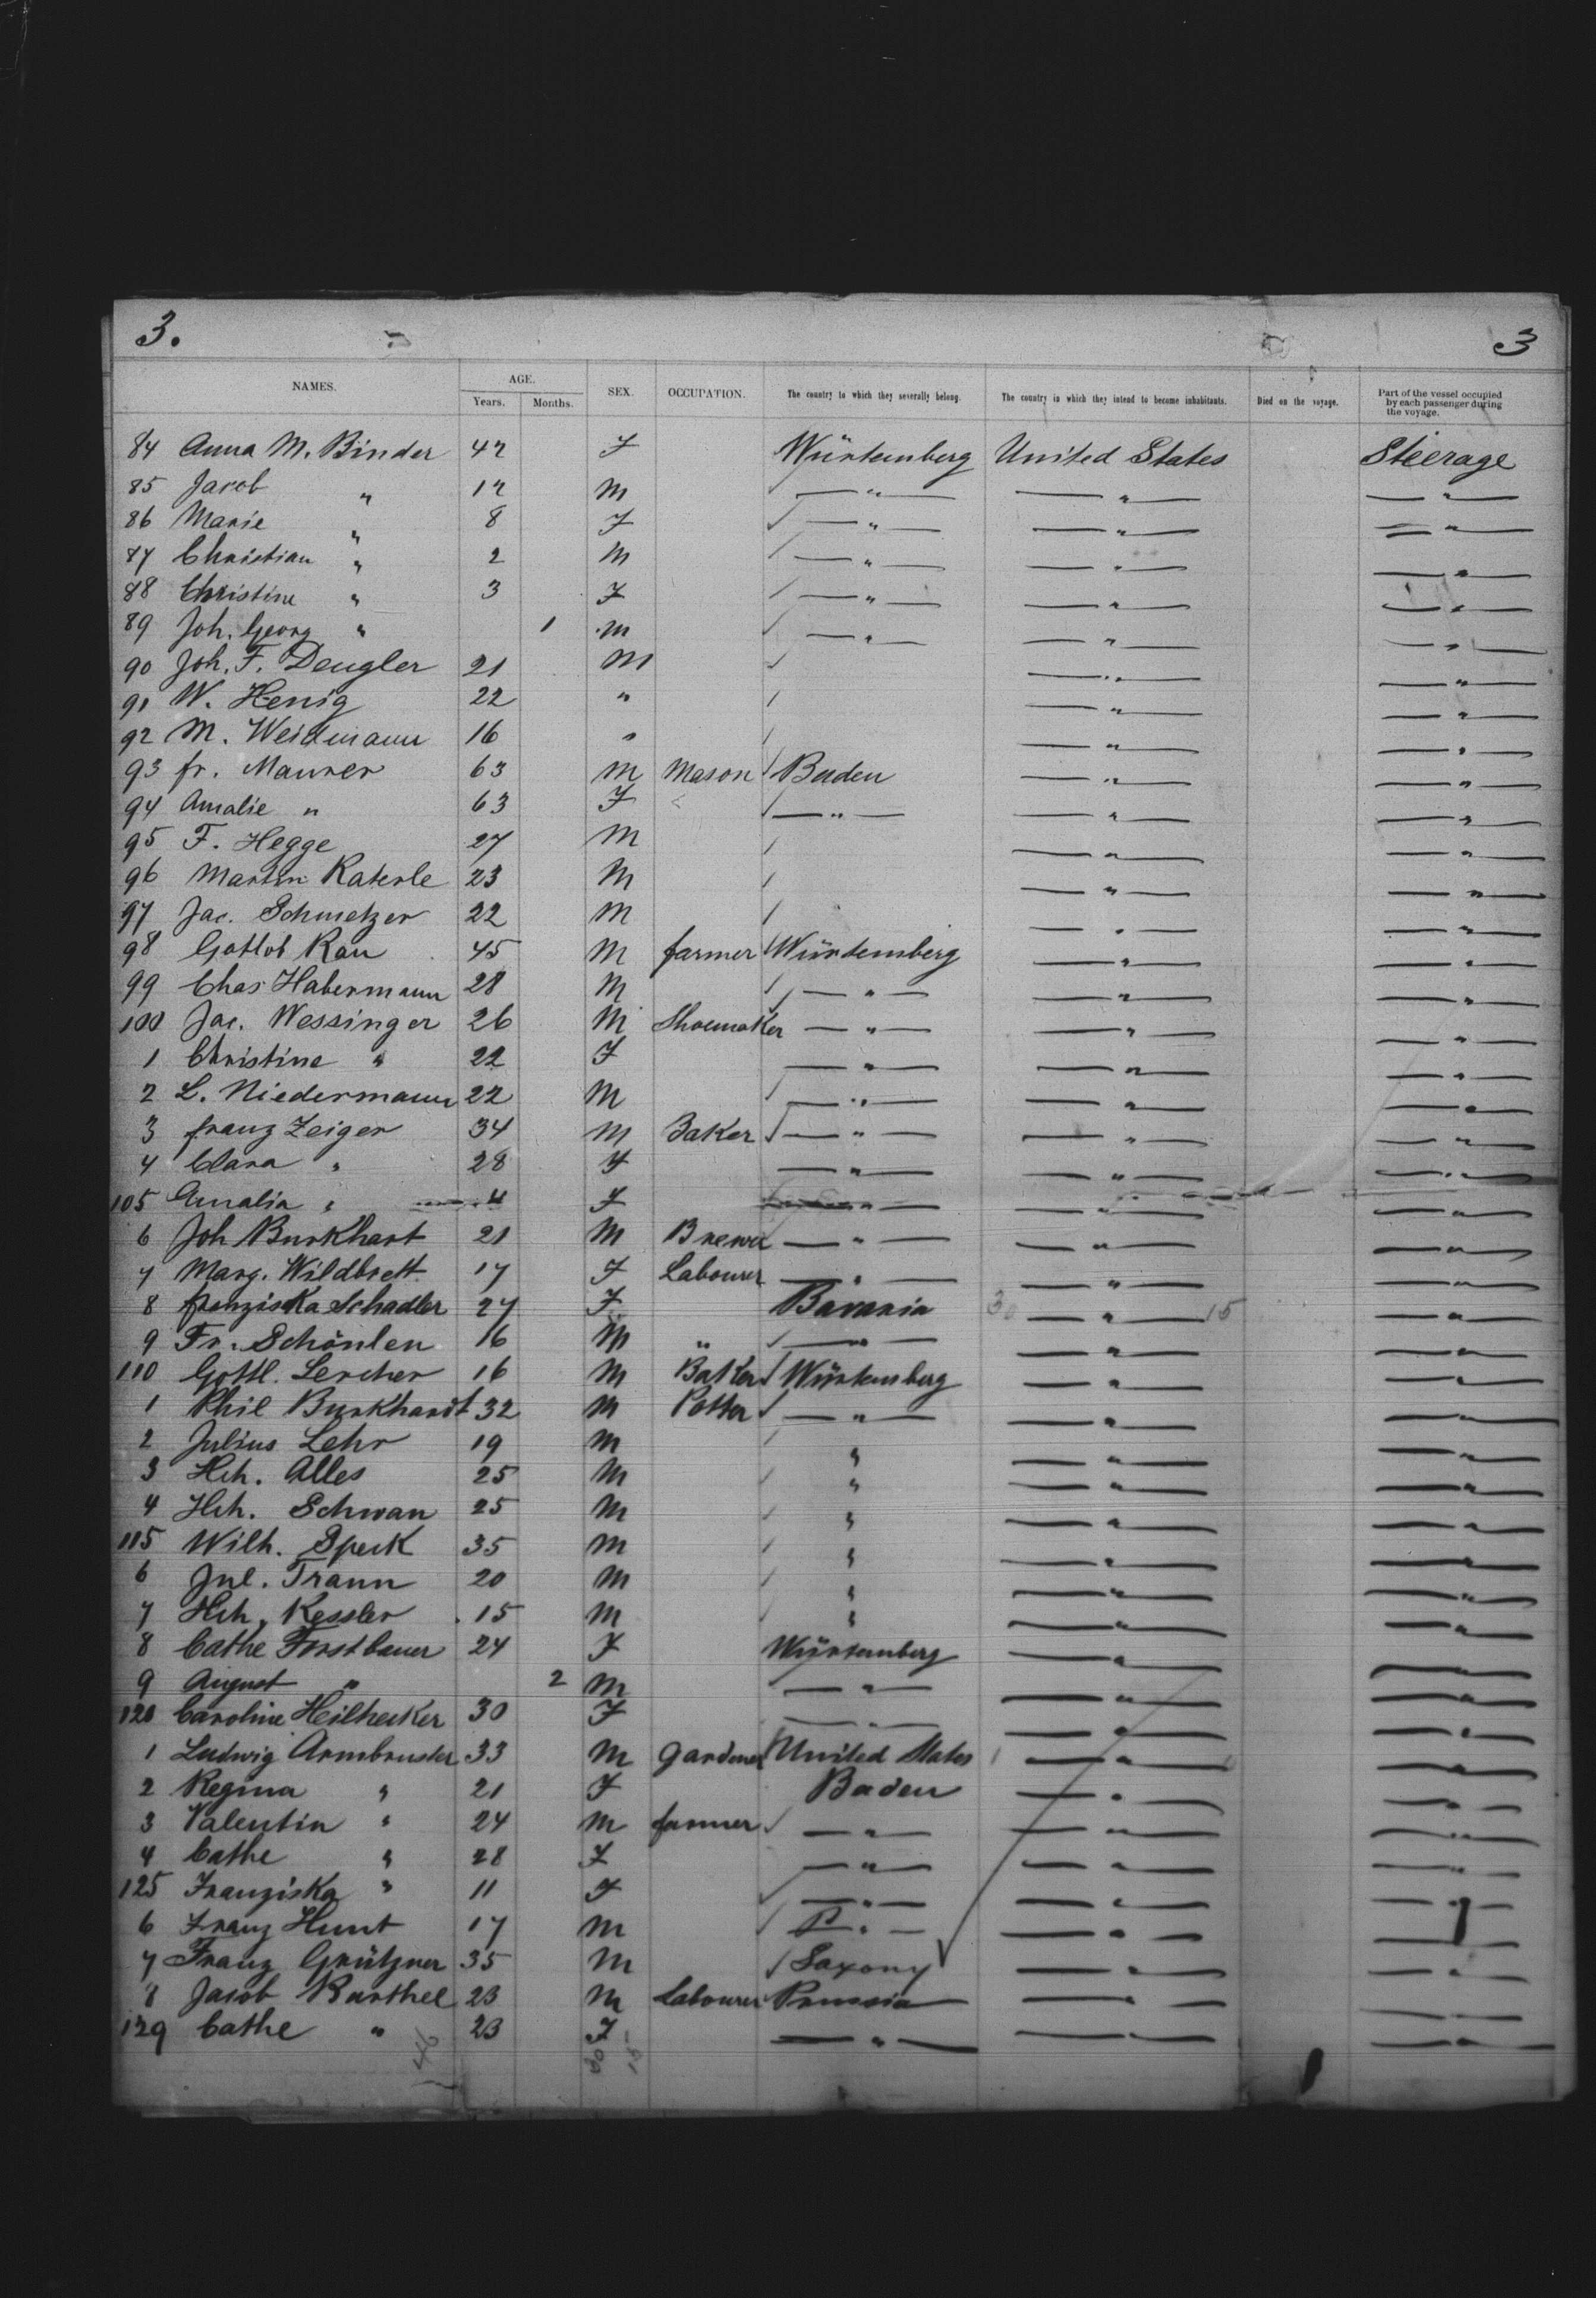 3. 3
NAMES. AGE. Years. Months. SEX. OCCUPATION. The country to which they severally belong. The country in which they intend to become inhabitants. Died on the voyage. Part of the vessel occupied by each passenger during the voyage.
84 Anna M. Binder 42 F Würtemberg United States Steerage
85 Jacob " 12 M — " — — " — — " —
86 Marie " 8 F — " — — " — — " —
87 Christian " 2 M — " — — " — — " —
88 Christine " 3 F — " — — " — — " —
89 Joh. Georg " 1 M — " — — " — — " —
90 Joh. F. Dengler 21 M — " — — " —
91 W. Henig 22 " — " — — " —
92 M. Weidmann 16 " — " — — " —
93 Fr. Maurer 63 M Mason Baden — " — — " —
94 Amalie " 63 F — " — — " — — " —
95 F. Hegge 27 M — " — — " —
96 Martin Katerle 23 M — " — — " —
97 Jac. Schmetzer 22 M — " — — " —
98 Gottlob Rau 45 M farmer Würtemberg — " — — " —
99 Chas Habermann 28 M — " — — " — — " —
100 Jac. Wessinger 26 M Shoemaker — " — — " — — " —
1 Christine " 22 F — " — — " — — " —
2 L. Niedermann 22 M — " — — " — — " —
3 Franz Zeiger 34 M Baker — " — — " — — " —
4 Clara " 28 F — " — — " — — " —
105 Amalia " 4 F — " — — " — — " —
6 Joh Burkhart 21 M Brewer — " — — " — — " —
7 Marg. Wildbrett 17 F Labourer — " — — " — — " —
8 Franziska Schadler 27 F Bavaria 30 — " — 15 — " —
9 Fr. Schönlen 16 M " — " — — " — — " —
110 Gottl. Lercher 16 M Baker Würtemberg — " — — " —
1 Phil Burkhardt 32 M Potter — " — — " — — " —
2 Julius Lehr 19 M " — " — — " —
3 Hch. Alles 25 M " — " — — " —
4 Hch. Schwan 25 M " — " — — " —
115 Wilh. Speck 35 M " — " — — " —
6 Jul. Traun 20 M " — " — — " —
7 Hch. Kessler 15 M " — " — — " —
8 Cathe Forstbauer 24 F Würtemberg — " — — " —
9 August " 2 M — " — — " — — " —
120 Caroline Heilhecker 30 F — " — — " — — " —
1 Ludwig Armbruster 33 M Gardener United States — " — — " —
2 Regina " 21 F Baden — " — — " —
3 Valentin " 24 M farmer — " — — " — — " —
4 Cathe " 28 F — " — — " — — " —
125 Franziska " 11 F — " — — " — — " —
6 Franz Hunt 17 M — " — — " — — " —
7 Franz Grützner 35 M Saxony — " — — " —
8 Jacob Barthel 23 M Labourer Prussia — " — — " —
129 Cathe " 23 F — " — — " — — " —